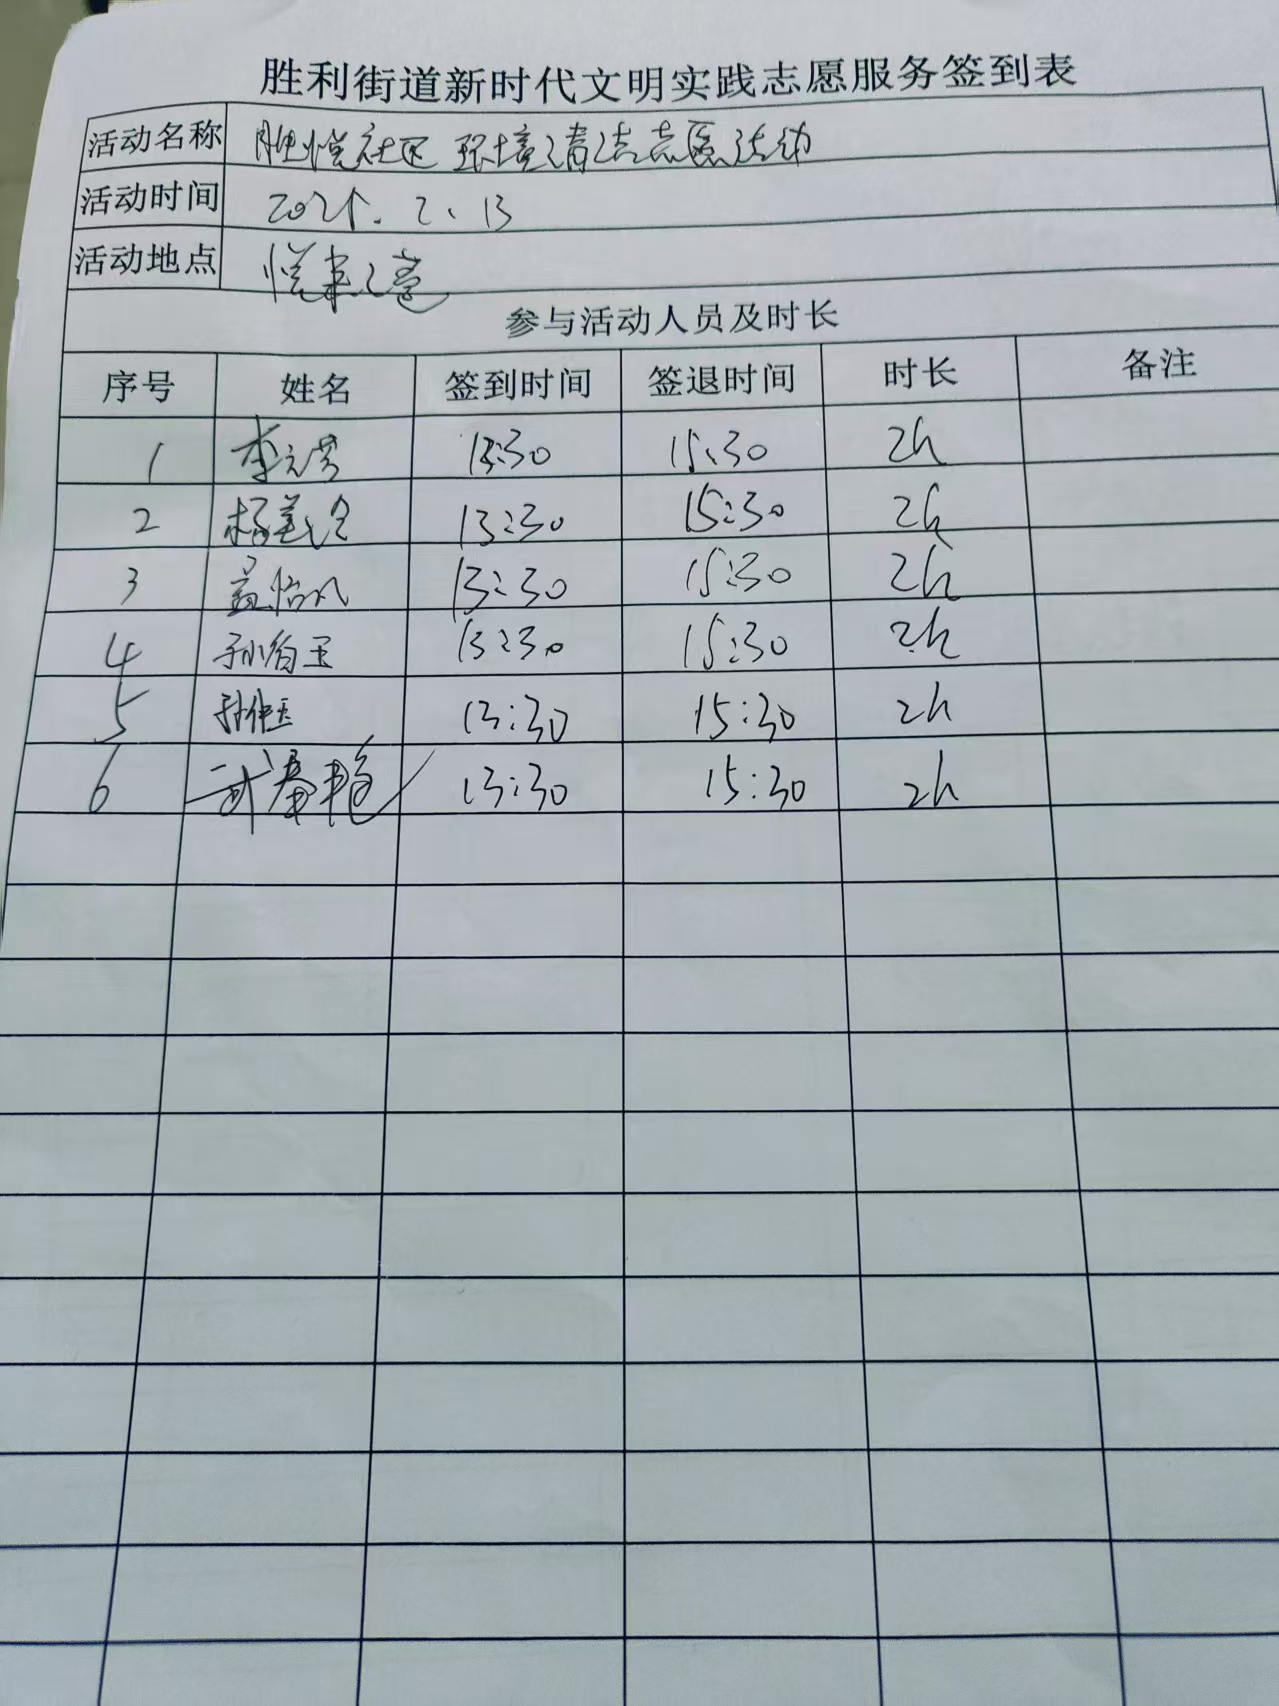 胜利街道新时代文明实践志愿服务签到表
活动名称 胜悦社区环境清洁志愿活动
活动时间 2025.2.13
活动地点 悦来之意
参与活动人员及时长
序号 姓名 签到时间 签退时间 时长 备注
1 李元芳 13:30 15:30 2h
2 13:30 15:30 2h
3 孟怡 13:30 15:30 2h
4 孙 玉 13:30 15:30 2h
5 孙佳玉 13:30 15:30 2h
6 武春艳 13:30 15:30 2h